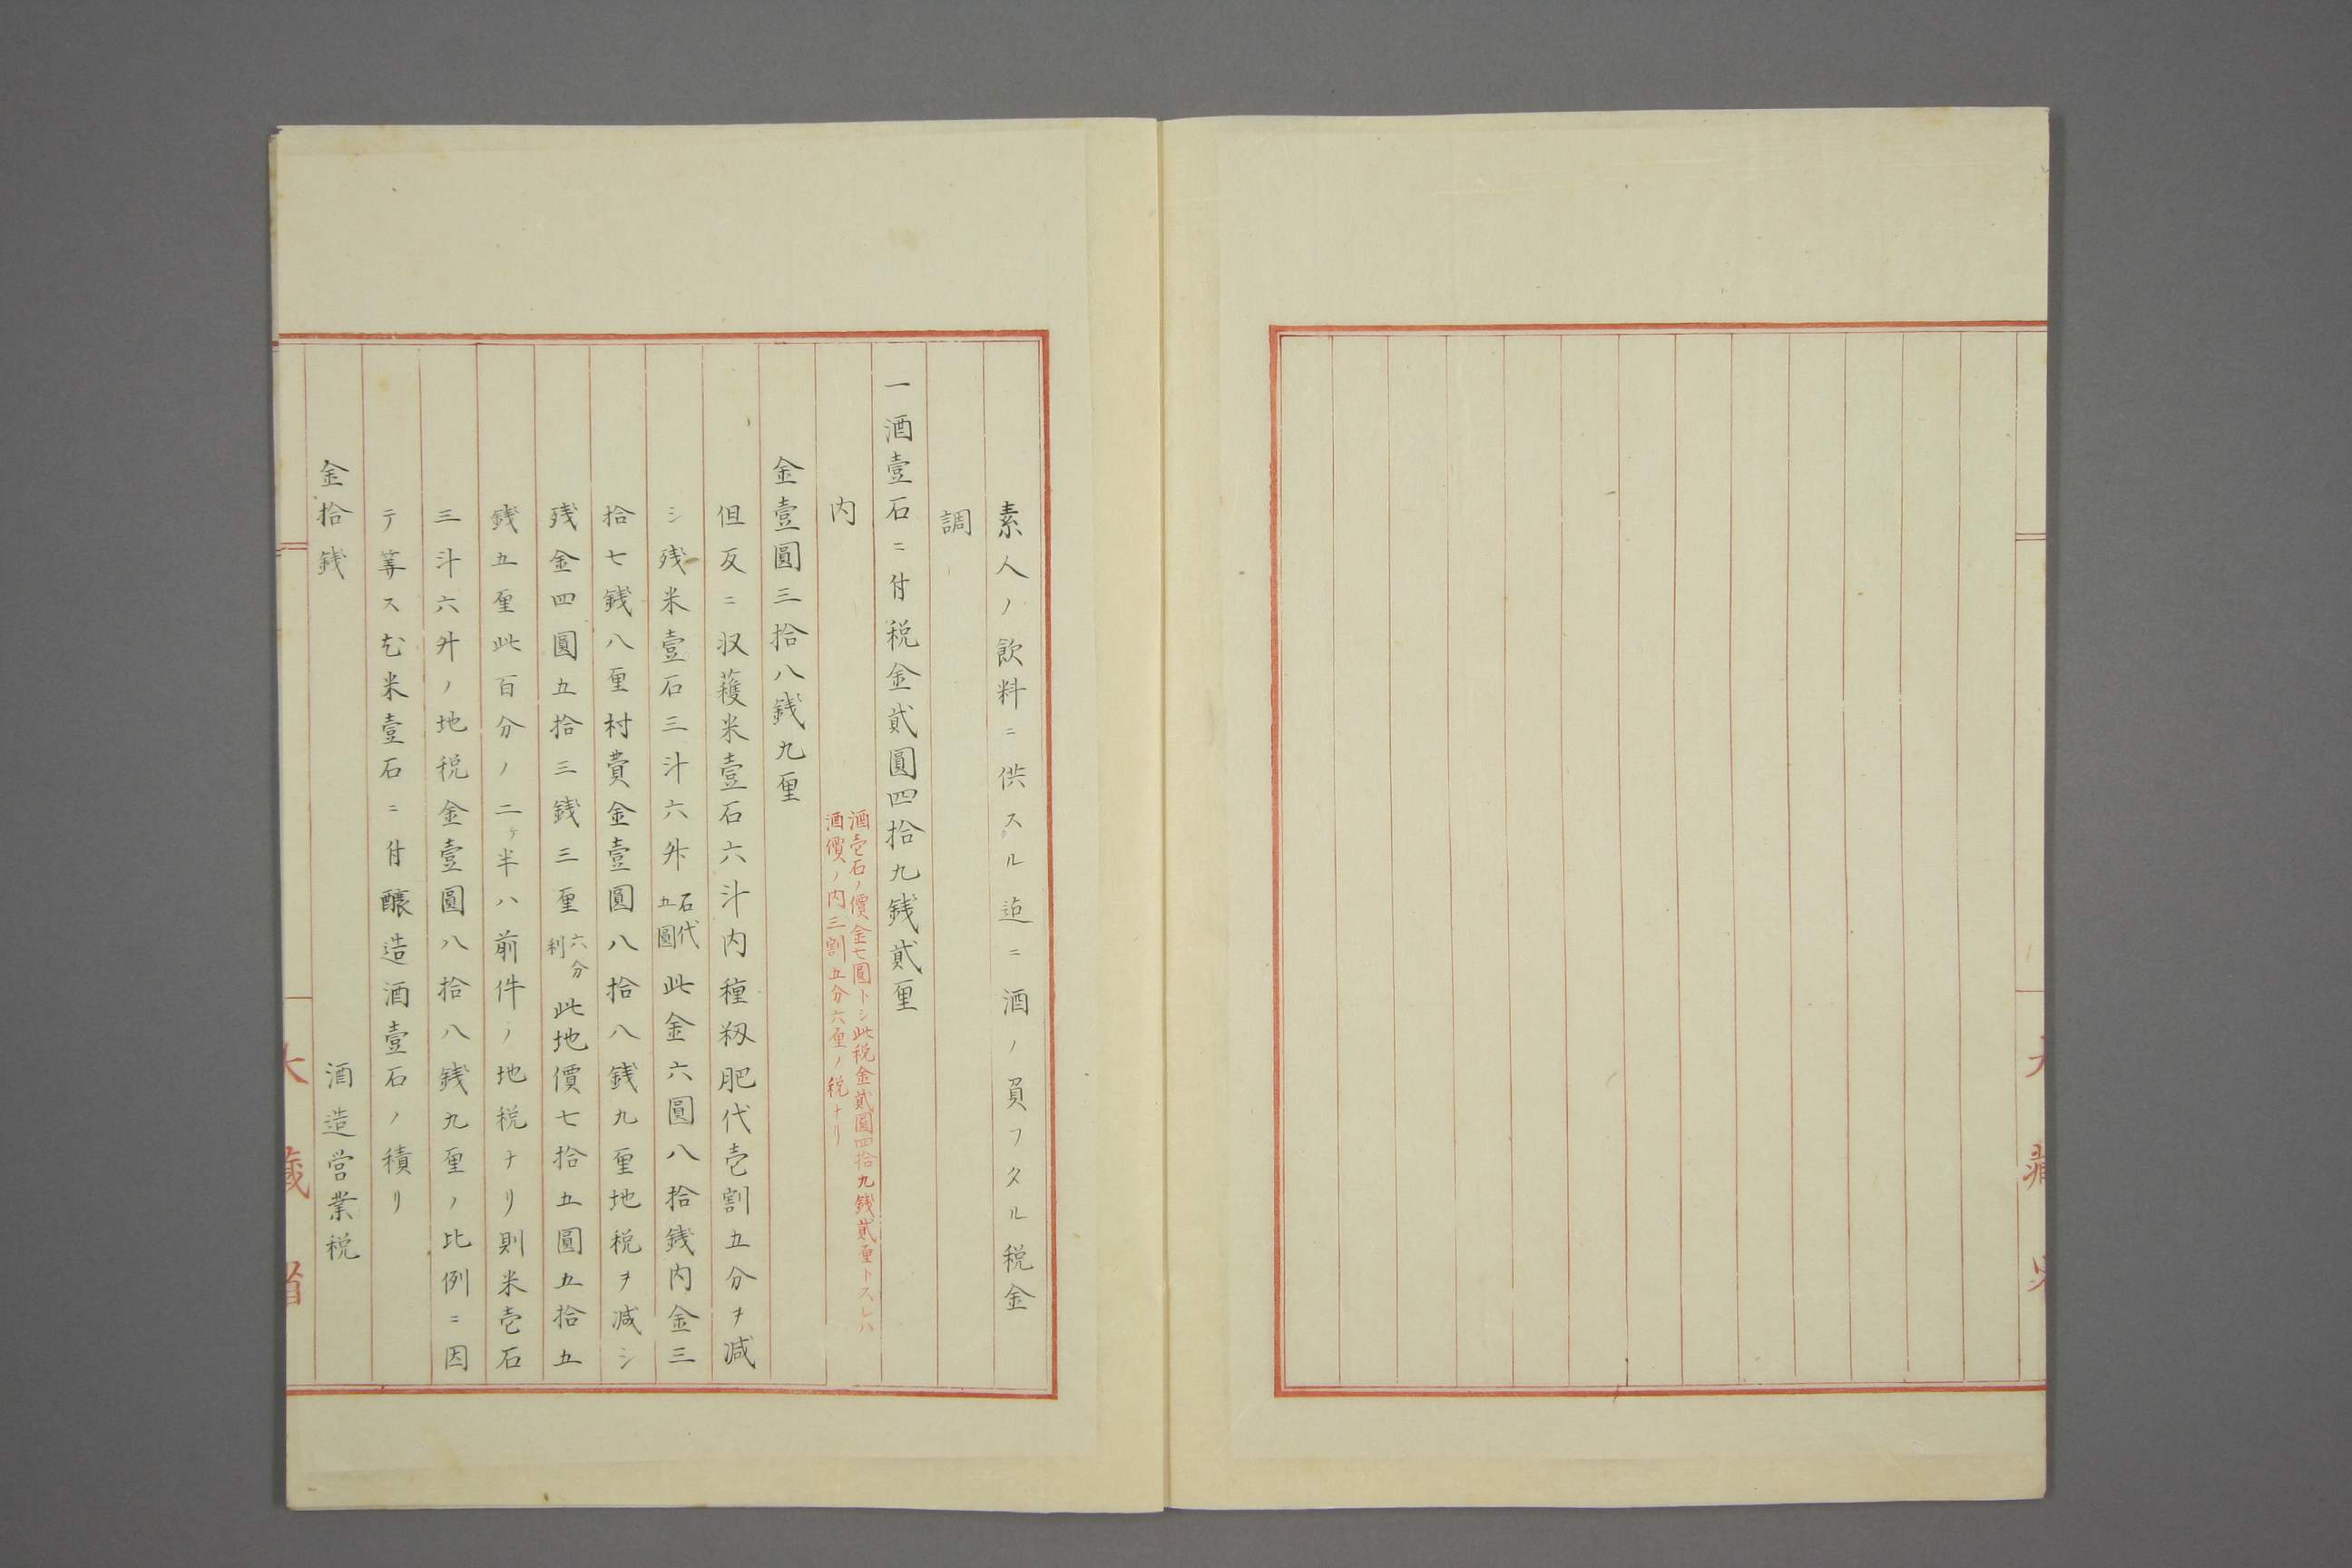 素人ノ飲料ニ供スル迠ニ酒ノ負フタル税金
調
一酒壹石ニ付税金貳圓四拾九銭貳厘
酒壱石ノ價金七圓トシ此税金貳圓四拾九銭貳厘トスレハ
酒價ノ内三割五分六厘ノ税ナリ
内
金壹圓三拾八銭九厘
但反ニ収穫米壹石六汁内種籾肥代壱割五分ヲ減
シ残米壹石三汁六舛 石代五圓 此金六圓八拾銭内金三
拾七銭八厘村費金壹圓八拾八銭九厘地税ヲ減シ
残金四圓五拾三銭三厘 六分利 此地價七拾五圓五拾五
銭五厘此百分ノ二ケ半ハ前件ノ地税ナリ則米壱石
三斗六舛ノ地税金壹圓八拾八銭九厘ノ比例ニ因
テ筭ス尤米壹石ニ付醸造酒壹石ノ積リ
金拾銭 酒造営業税
大藏省